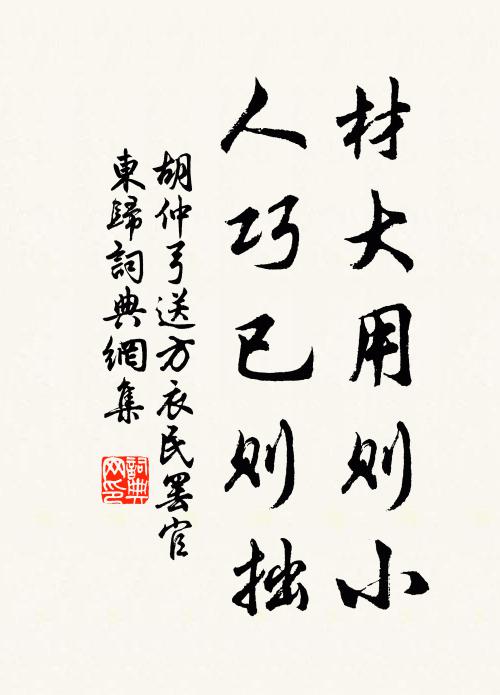 材大用则小
人巧已则拙
胡仲弓送方衣民罢官
東歸詞典網集
詞典
网印